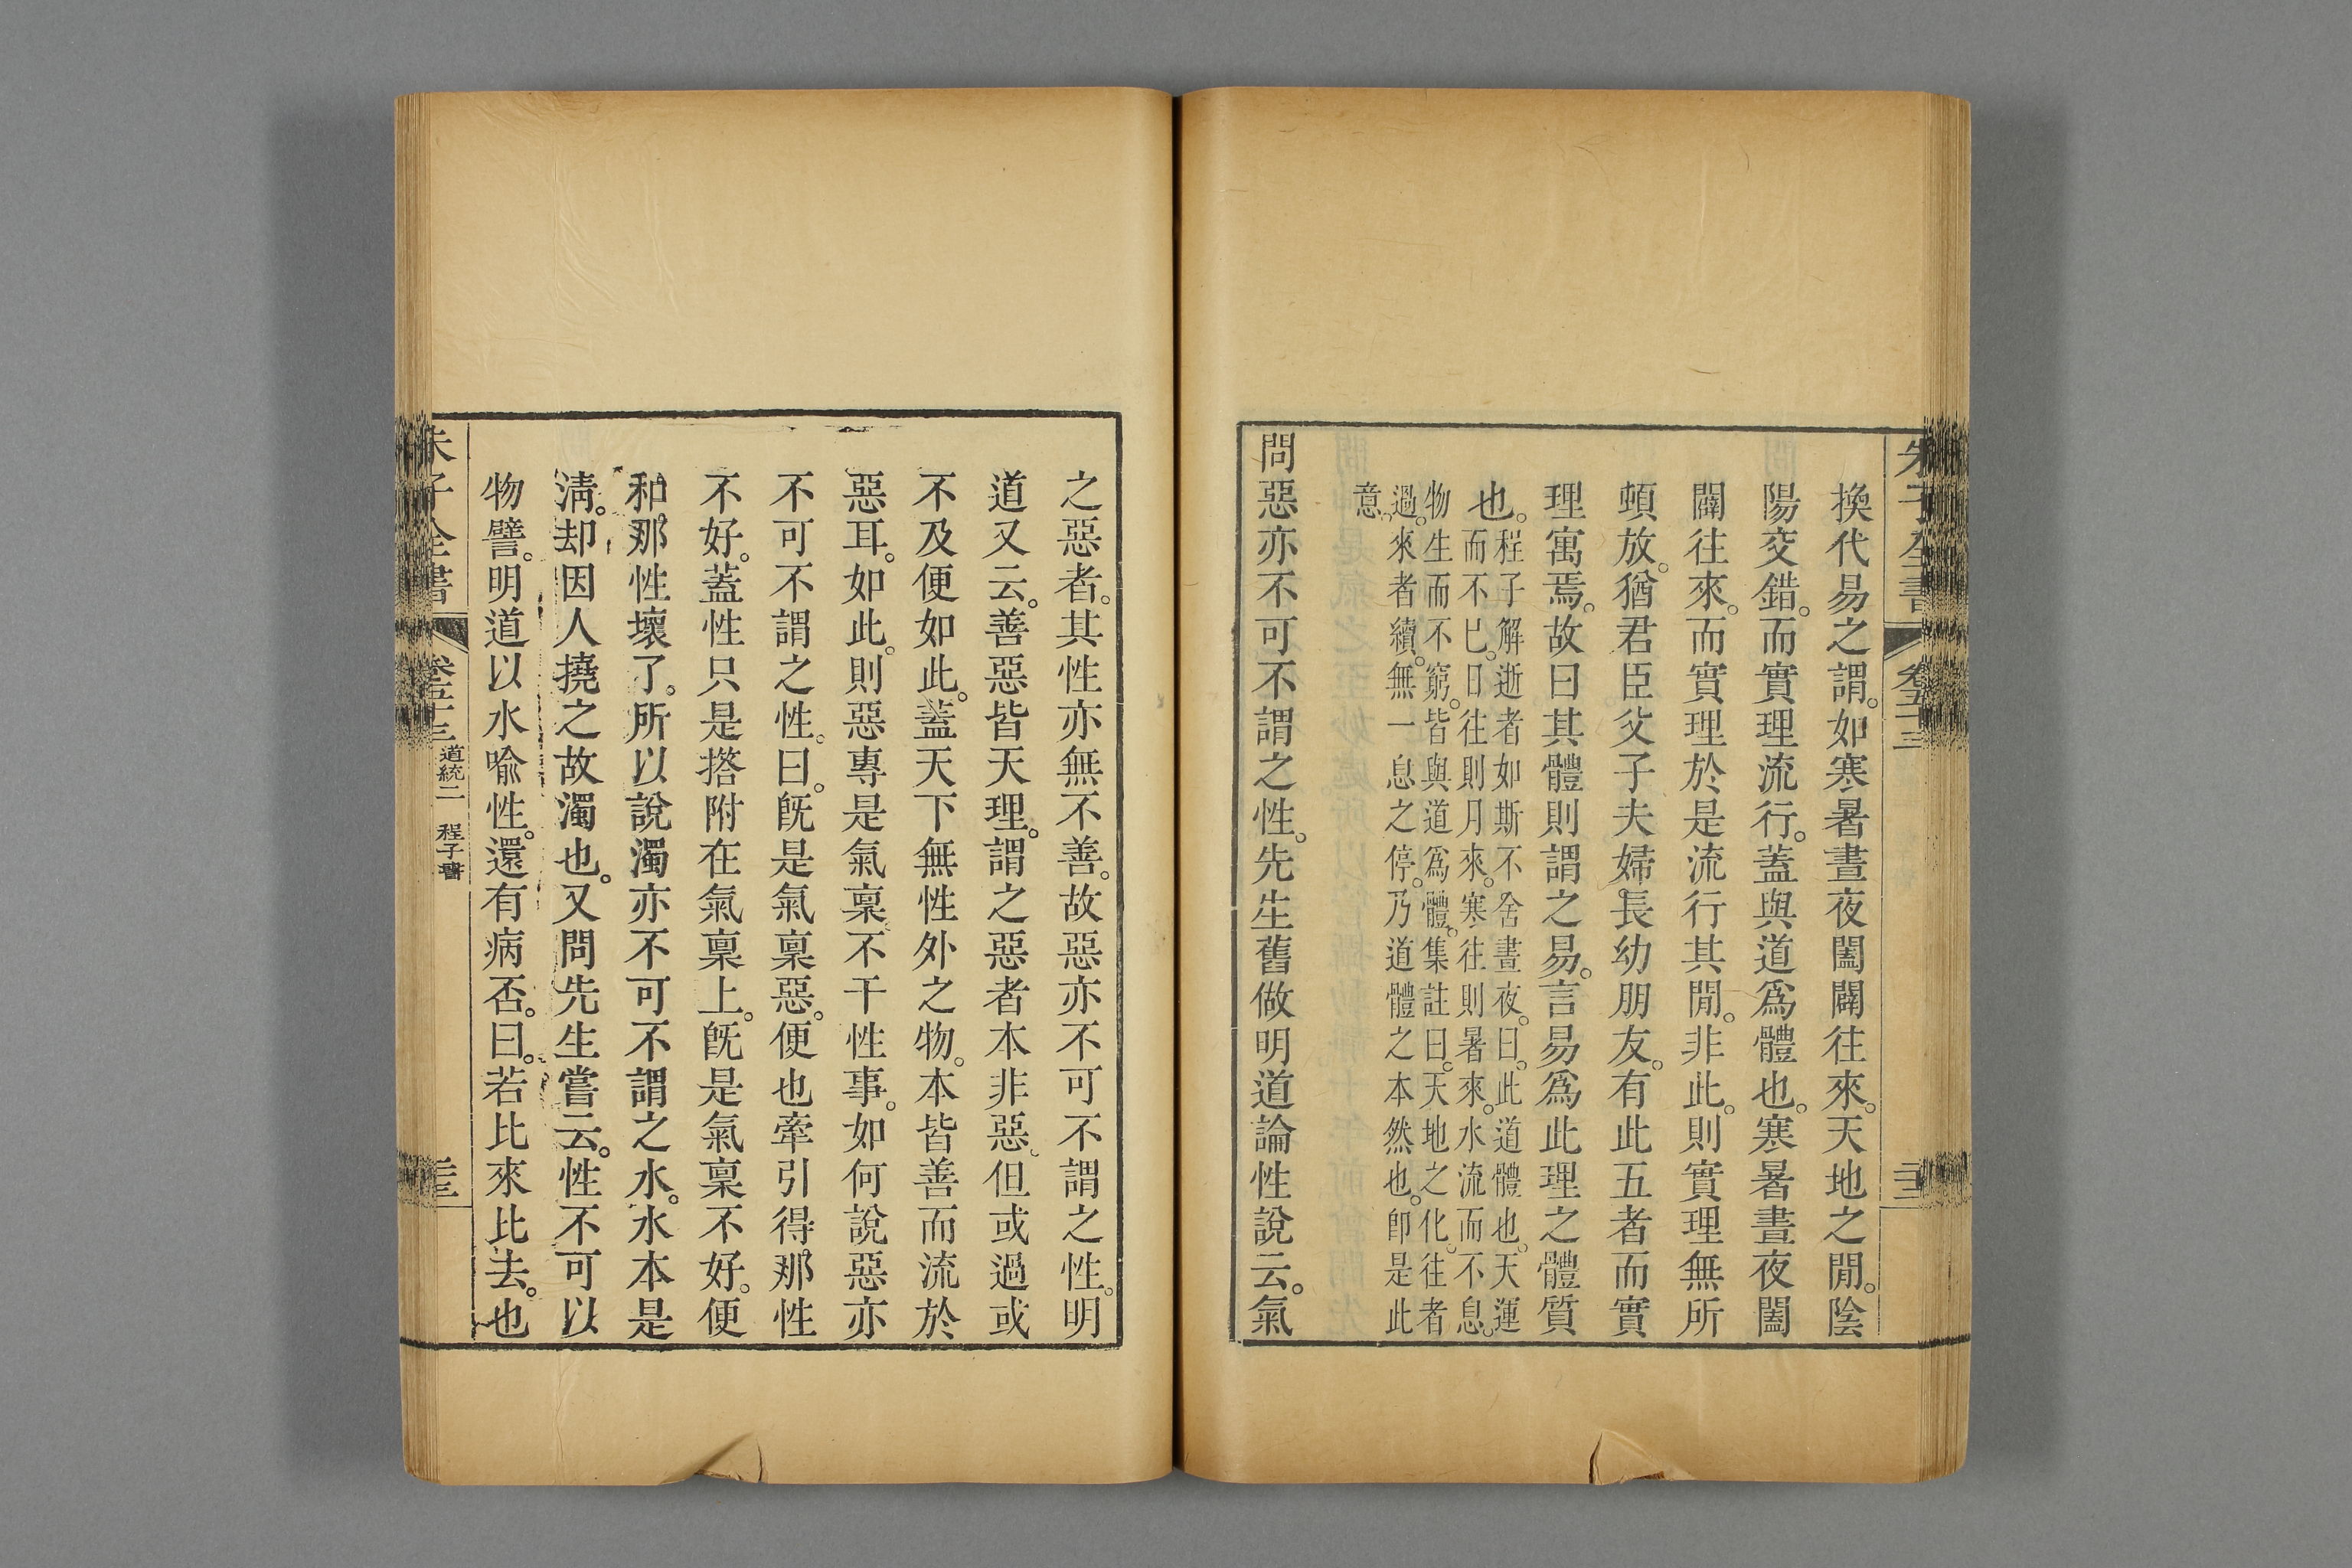 朱子全書
卷五十三
換代易之謂。如寒暑晝夜闔闢往來。天地之閒。陰
陽交錯。而實理流行。蓋與道爲體也。寒暑晝夜闔
闢往來。而實理於是流行其閒。非此。則實理無所
頓放。猶君臣父子夫婦。長幼朋友。有此五者而實
理寓焉。故曰其體則謂之易。言易爲此理之體質
也。程子解逝者如斯不舍晝夜。曰。此道體也。天運
而不已。日往則月來。寒往則暑來。水流而不息。
物生而不窮。皆與道爲體。集註曰。天地之化。往者
過。來者續。無一息之停。乃道體之本然也。卽是此
意。
問惡亦不可不謂之性。先生舊做明道論性說云。氣
之惡者。其性亦無不善。故惡亦不可不謂之性。明
道又云。善惡皆天理。謂之惡者本非惡。但或過或
不及便如此。蓋天下無性外之物。本皆善而流於
惡耳。如此。則惡專是氣稟。不干性事。如何說惡亦
不可不謂之性。曰。旣是氣稟惡。便也牽引得那性
不好。蓋性只是搭附在氣稟上。旣是氣稟不好。便
和那性壞了。所以說濁亦不可不謂之水。水本是
淸。却因人撓之故濁也。又問先生嘗云。性不可以
物譬。明道以水喻性。還有病否。曰。若比來比去。也
朱子全書
卷五十三
道統二 程子書